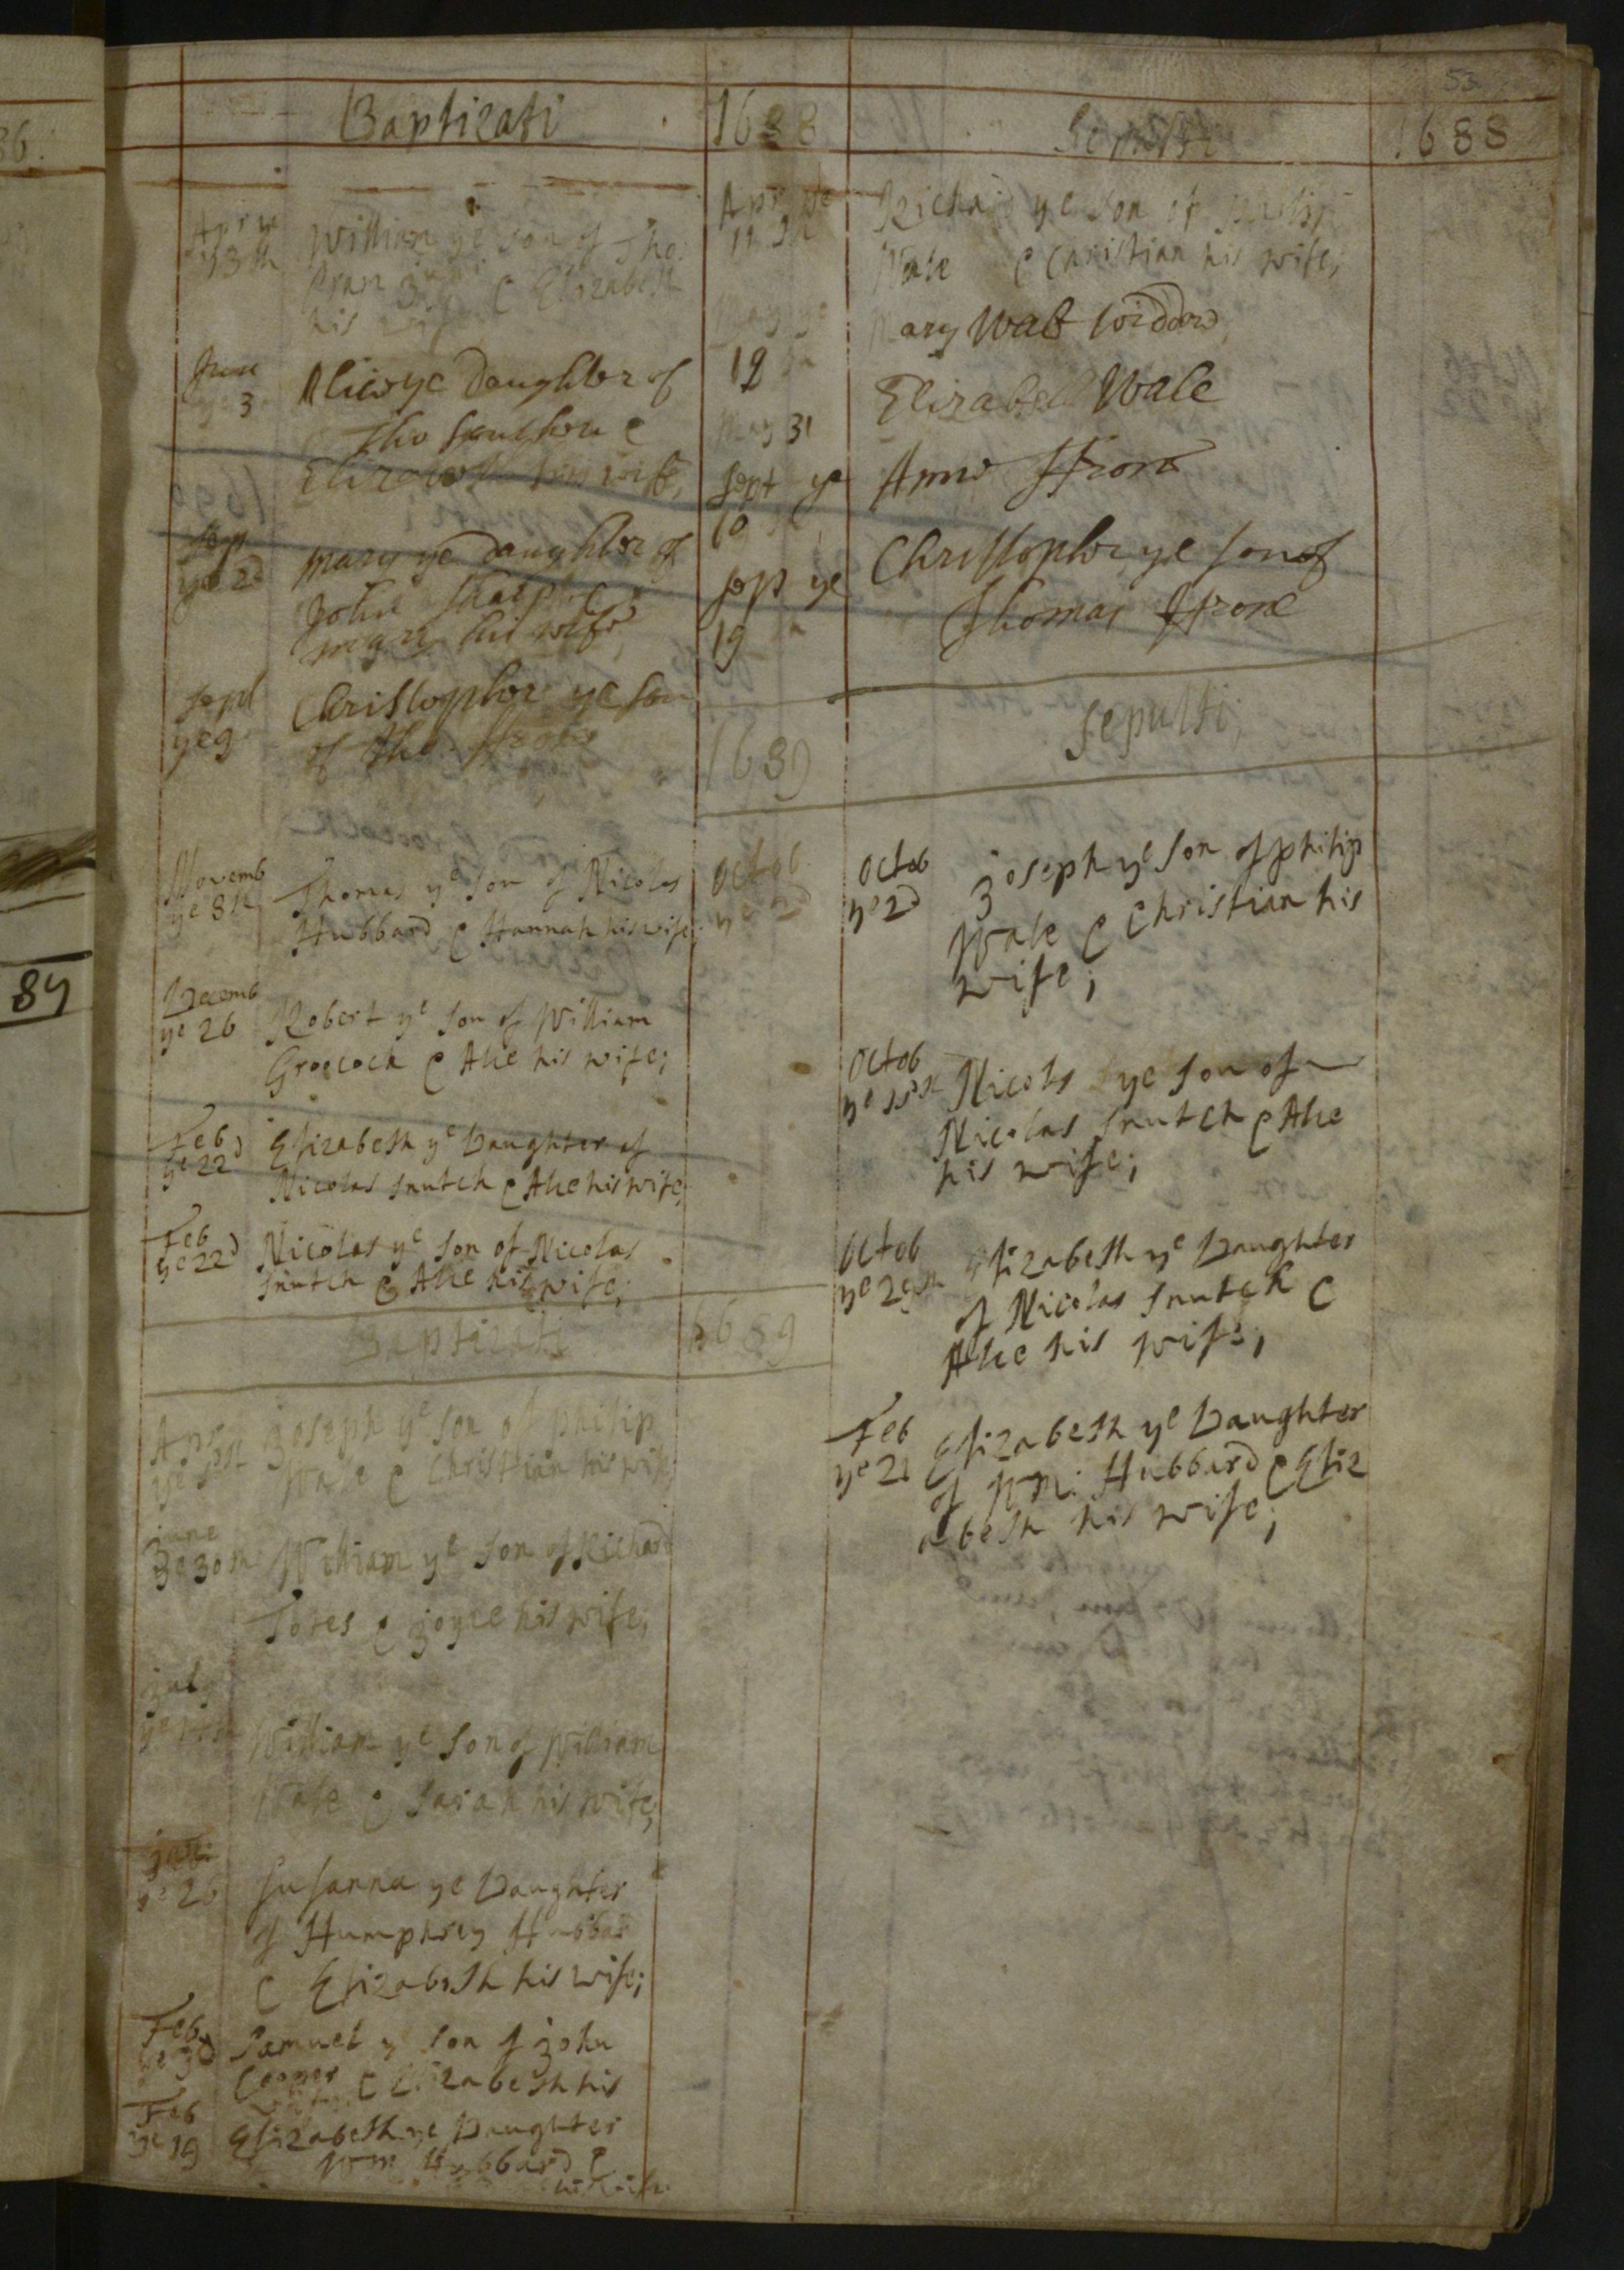 53
Baptizati 1688
Apr ye
13th
William ye son of Tho:
& Elizabeth
his wife
June
ye 3
Alice ye Daughter of
Tho &
Elizabeth his wife,
Sep
ye 2d
Mary ye Daughter of
John Sharp &
Mary his wife,
Sept
ye 9
Christopher ye son
of Tho: ffrone
Novemb
ye 8th
Thomas ye son of Nicolas
Hubbard & Hannah his wife;
Decemb
ye 26
Robert ye son of William
Groocock & Alie his wife;
Feb
ye 22d
Elizabeth ye Daughter of
Nicolas Snutch & Alie his wife;
Feb
ye 22d
Nicolas ye son of Nicolas
Snutch & Alie his wife;
Baptizati 1689
Apr
ye
Joseph ye son of philip
Wale & Christian his wife
June
ye 30th
William ye son of Richard
Tores & Joyce his wife;
July
ye
William ye son of William
Wale & Sarah his wife;
ye 26
Susanna ye Daughter
of Humphrey Hubbard
& Elizabeth his wife;
Feb
ye 3d
Samuel ye son of John
Cooper & Elizabeth his
Feb
ye 19
Elizabeth ye Daughter
Wm Hubbard &
Sepulti 1688
Apr ye
11th
Richard ye son of philip
Wale & Christian his wife;
May ye
19
Mary Wale widdow
May 31
Elizabeth Wale
Sept ye
10
Anne ffrone
Sept ye
19
Christopher ye son of
Thomas ffrone
1689 Sepulti;
Octob
ye 2d
Octob
ye 2d
Joseph ye son of philip
Wale & Christian his
wife;
Octob
ye
Nicols ye son of
Nicolas Snutch & Alie
his wife;
Octob
ye 29th
Elizabeth ye Daughter
of Nicolas Snutch &
Alie his wife;
Feb
ye 21
Elizabeth ye Daughter
of Wm: Hubbard & Eliz
abeth his wife;